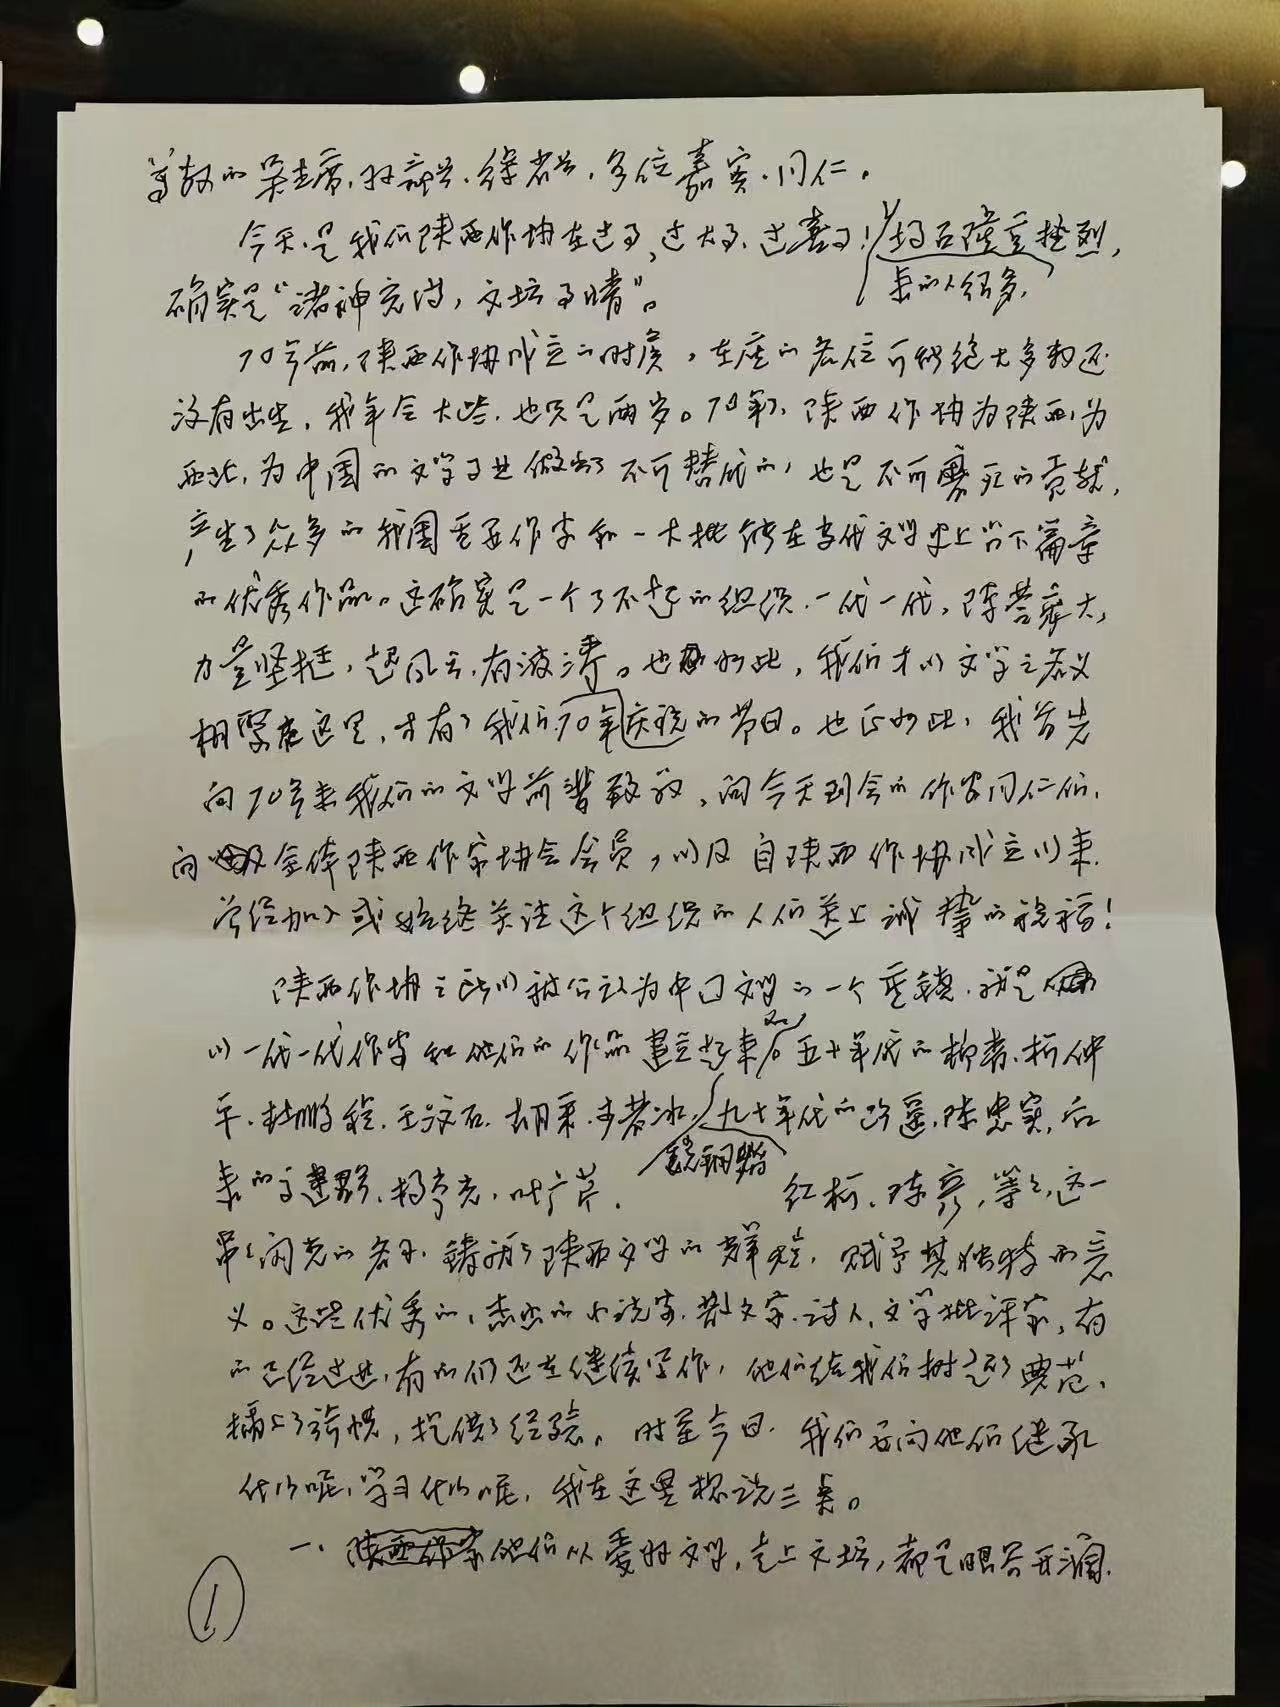 尊敬的吴主席、孙部长、徐书长、各位嘉宾、同仁。
今天,是我们陕西作协在过事,过大事、过喜事!场面隆重热烈,
来的人很多,
确实是“诸神充满,文坛事晴”。
70年前,陕西作协成立的时候,在座的各位可能绝大多数还
没有出生,我年令大些,也只是两岁。70年了,陕西作协为陕西,为
西北,为中国的文学事业做出了不可替代的,也是不可磨灭的贡献,
产生了众多的我国重要作家和一大批能在当代文学史上留下篇章
的优秀作品。这确实是一个了不起的组织,一代一代,阵营庞大,
力量坚挺,起风云,有波涛。也如此,我们才以文学之名义
相聚在这里,才有了我们70年庆祝的节日。也正如此,我首先
向70年来我们的文学前辈致敬,向今天到会的作家同仁们,
向全体陕西作家协会会员,以及自陕西作协成立以来
曾经加入或始终关注这个组织的人们送上诚挚的祝福!
陕西作协之所以被公认为中国文学的一个重镇,就是
以一代一代作家和他们的作品建立起来的。五十年代的柳青、柯仲
平、杜鹏程、王汶石、胡采、李若冰,九十年代的路遥、陈忠实,后
来的高建群、杨争光、叶广芩、红柯、陈彦,等等,这一
串串闪光的名字,铸就了陕西文学的辉煌,赋予其独特的意
义。这些优秀的,杰出的小说家、散文家、诗人、文学批评家,有
的已经过世,有的们还在继续写作,他们给我们树起了典范,
积供了经验。时至今日,我们要向他们继承
什么呢,学习什么呢,我在这里想说三点。
一、他们从爱好文学,走上文坛,都是眼界开阔,
1